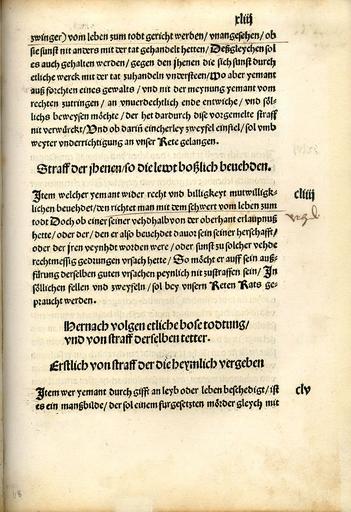 xliij
zwinger) vom leben zum todt gericht werden/ vnangesehen/ ob
sie sunst nit anders mit der tat gehandelt hetten/ Deßgleychen sol
es auch gehalten werden/ gegen den jhenen die sich sunst durch
etliche werck mit der tat zuhandeln vndersteen/ Wo aber yemant
auß forchten eines gewalts/ vnd nit der meynung yemant vom
rechten zutringen/ an vnuerdechtlich ende entwiche/ vnd söl-
lichs beweysen möchte/ der hat dardurch dise vorgemelte straff
nit verwürckt/ Vnd ob darin eincherley zweyfel einfiel/ sol vmb
weyter vnderrichtigung an vnser Rete gelangen.
Straff der jhenen/ so die lewt boßlich beuehden.
Jtem welcher yemant wider recht vnd billigkeyt mutwilligk-
lichen beuehdet/ den richtet man mit dem schwert vom leben zum
todt Doch ob einer seiner vehdhalb von der oberhant erlaupnuß
hette/ oder der/ den er also beuehdet dauor sein seiner herschafft/
oder der jren veyndt worden were/ oder sunst zu solcher vehde
rechtmessig gedrungen vrsach hette/ So möcht er auff sein auß-
fürung derselben guten vrsachen peynlich nit zustraffen sein/ Jn
söllichen fellen vnd zweyfeln/ sol bey vnsern Reten Rats ge-
praucht werden.
cliiij
Hernach volgen etliche böse todtung/
vnd von straff derselben tetter.
Erstlich von straff der die heymlich vergeben
Jtem wer yemant durch gifft an leyb oder leben beschedigt/ ist
es ein manßbilde/ der sol einem fürgesetzten mörder gleych mit
clv